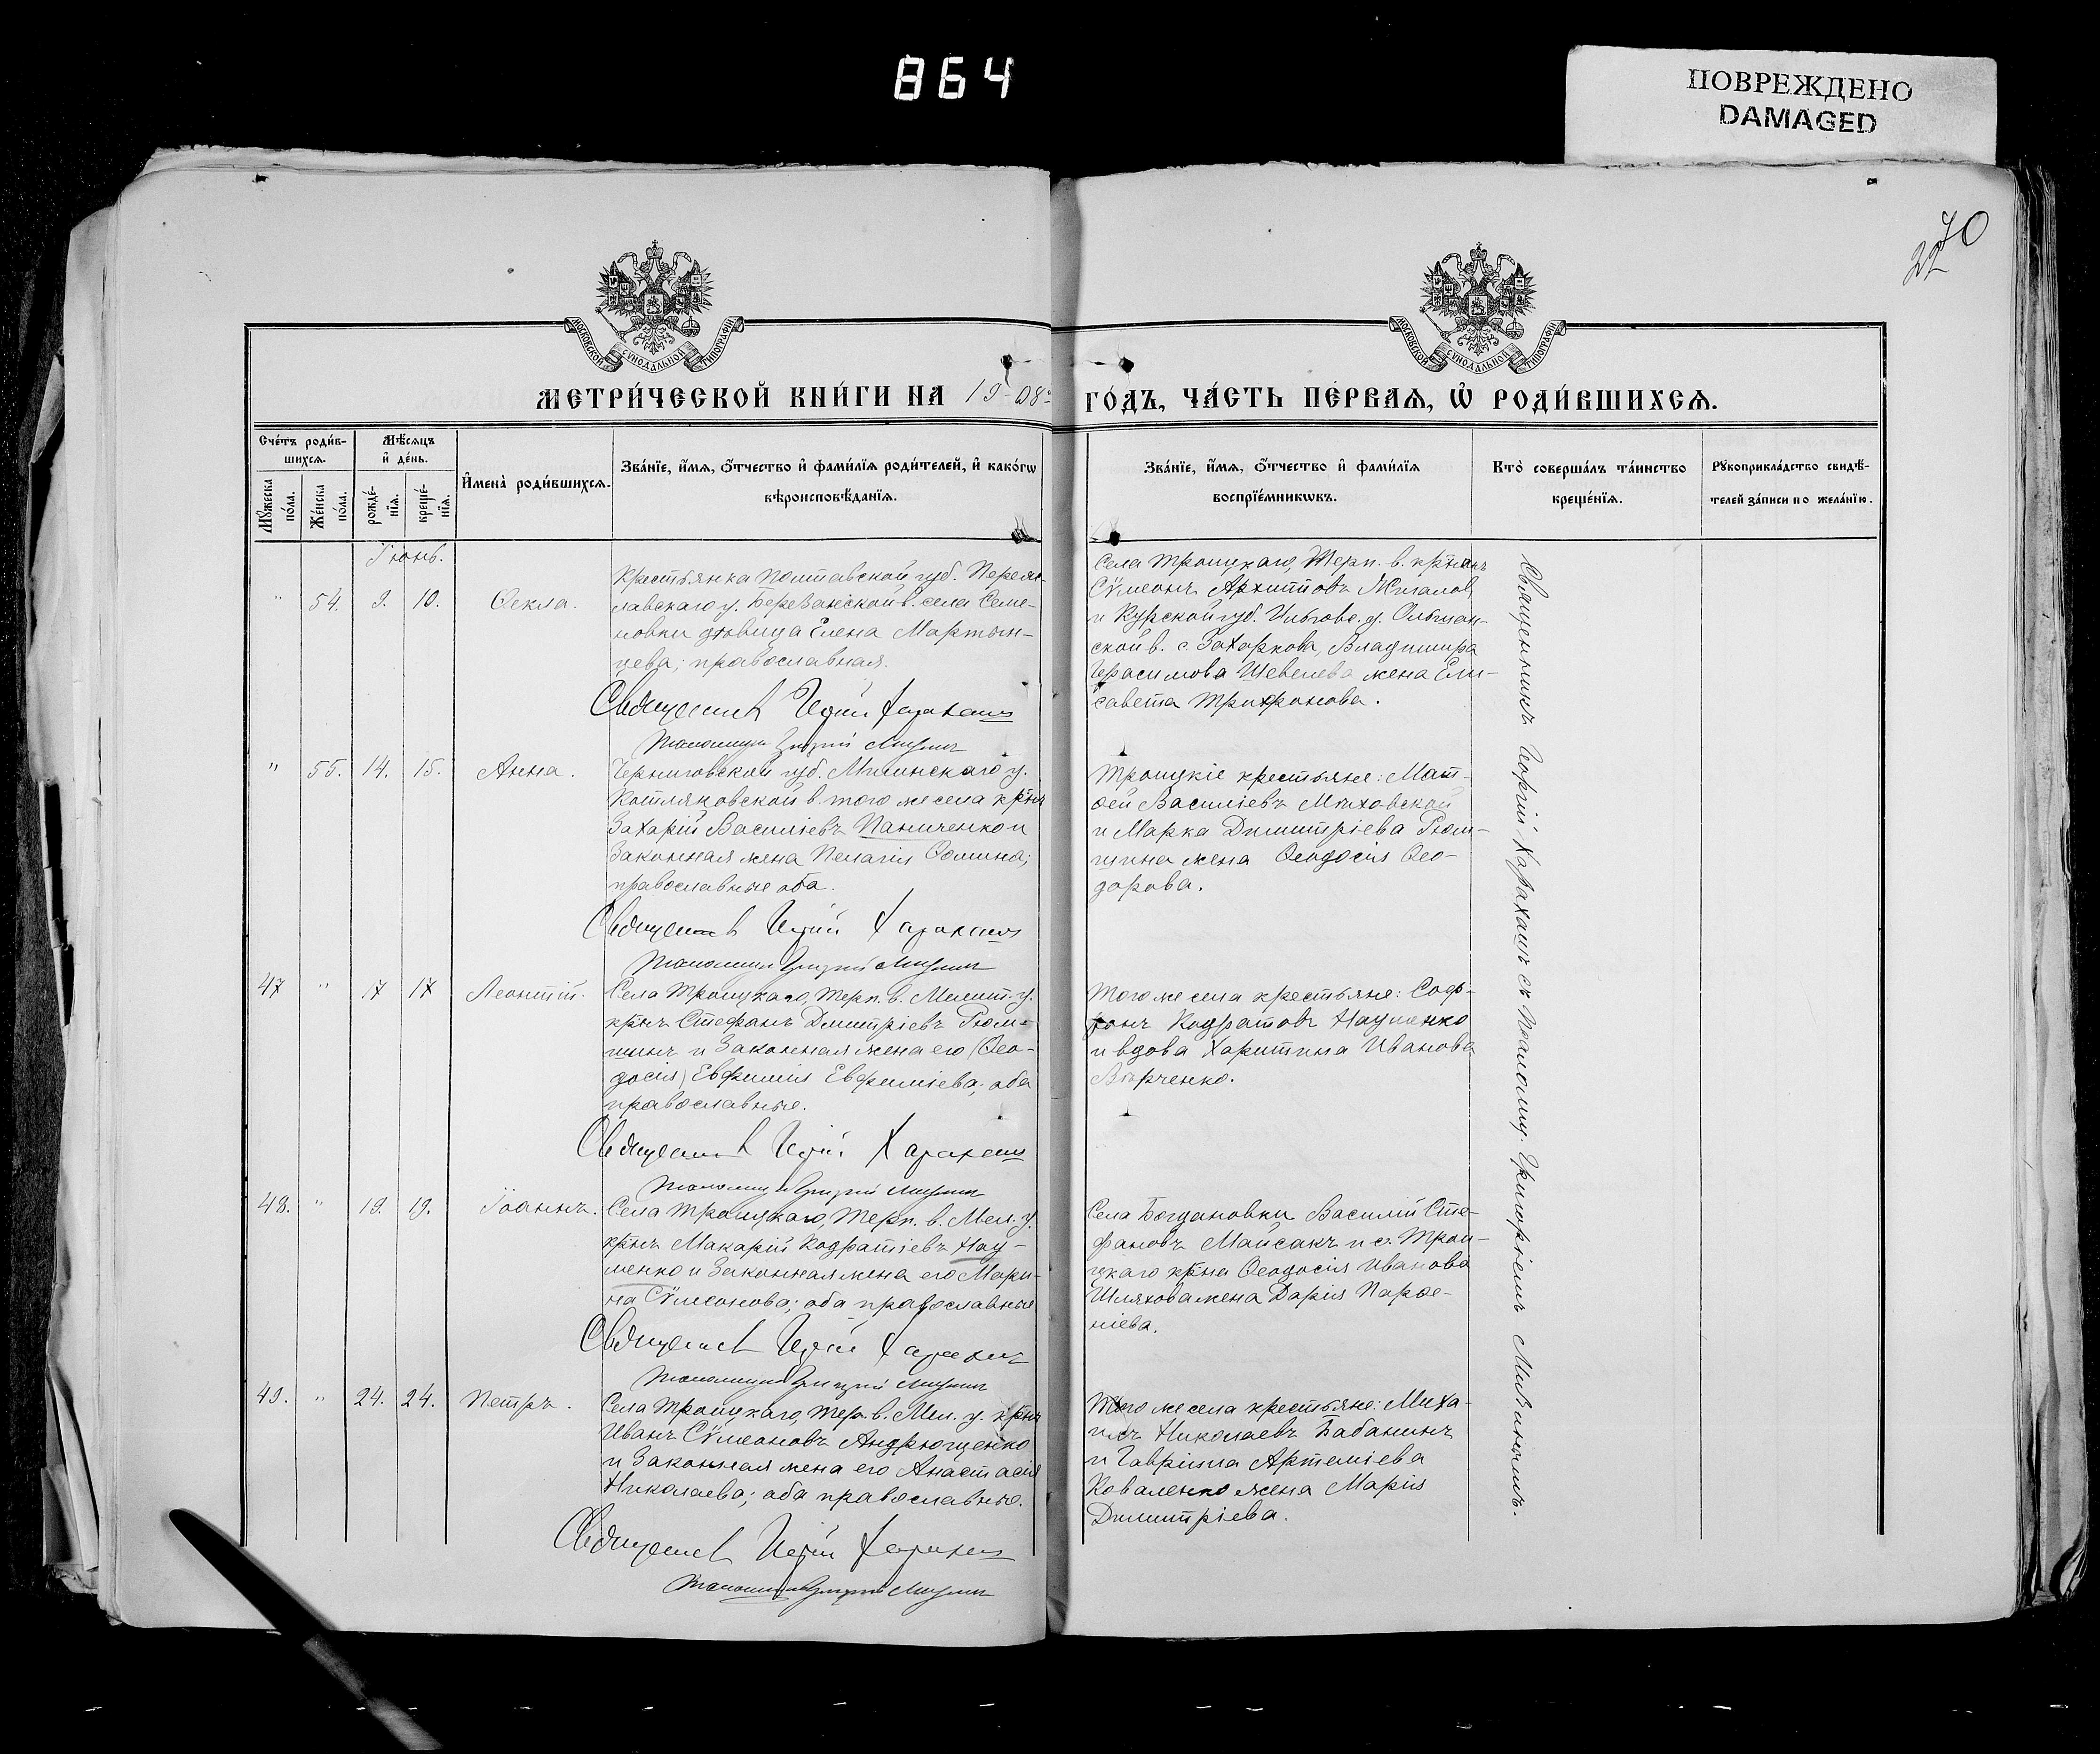 864
ПОВРЕЖДЕНО
DAMAGED
70
МОСКОВСКОЙ СѴНОДАЛЬНОЙ ТИПОГРАФІИ
МОСКОВСКОЙ СѴНОДАЛЬНОЙ ТИПОГРАФІИ
МЕТРИ́ЧЕСКОЙ КНИ́ГИ НА 1908 ГО́ДЪ, ЧА́СТЬ ПЕ́РВАѦ, Ѡ҆ РОДИ́ВШИХСѦ.
Сче́тъ роди́в-
шихсѧ.
Мꙋ́жеска по́ла.
Же́нска по́ла.
Мѣ́сѧцъ
и҆ де́нь.
рожде́-
нїѧ.
креще́-
нїѧ.
И҆мена̀ роди́вшихсѧ.
Зва́нїе, и҆́мѧ, ѻ҆́тчество и҆ фами́лїѧ роди́телей, и҆ како́гѡ
вѣроисповѣ́данїѧ.
Зва́нїе, и҆́мѧ, ѻ҆́тчество и҆ фами́лїѧ
воспрїе́мникѡвъ.
Кто̀ соверша́лъ та́инство
креще́нїѧ.
Рꙋкоприкла́дство свидѣ́-
телей за́писи по жела́нїю.
Іюнь.
" 54. 9. 10. Ѳекла.
Крестьянка Полтавской губ. Переяс-
лавскаго у. Березанской в. села Семе-
новки дѣвица Елена Мартын-
цева; православная.
Священникъ Георгій Харахашъ
Псаломщикъ Григорій
Села Троицкаго, Терп. в. крѣнинъ
Сѵмеонъ Архиповъ Жигалов
и Курской губ. Льговс. у. Ольшан-
ской в. с. Захаркова, Владиміра
Герасимова Шевелева жена Ели-
савета Трифонова.
" 55. 14. 15. Анна.
Черниговской губ. Мглинскаго у.
Котляковской в. того же села крнъ
Захарій Василіевъ Паниченко и
законная жена Пелагія Ѳомина;
православные оба.
Священникъ Георгій Харахашъ
Псаломщикъ Григорій
Троицкіе крестьяне: Мат-
ѳей Василіевъ Мѣховской
и Марка Димитріева Рюм-
шина жена Ѳеодосія Ѳео-
дорова.
47 " 17 17 Леонтій.
Села Троицкаго, Терп. в. Мелит. у.
крнъ Стефанъ Димитріевъ Рюм-
шинъ и законная жена его (Ѳео-
досія) Евфимія Евфиміева; оба
православные.
Священникъ Георгій Харахашъ
Псаломщикъ Григорій
Того же села крестьяне: Соф-
ронъ Кодратовъ Науменко
и вдова Харитина Иванова
Вѣрченко.
48. " 19. 19. Іоаннъ.
Села Троицкаго, Терп. в. Мел. у.
крнъ Макарій Кодратіевъ Нау-
менко и законная жена его Мари-
на Сѵмеонова; оба православные
Священникъ Георгій Харахашъ
Псаломщикъ Григорій
Села Богдановки Василій Сте-
фановъ Майсакъ и с. Трои-
цкаго крна Ѳеодосія Иванова
Шляхова жена Дарія Парѳе-
ніева.
49. " 24. 24. Петръ.
Села Троицкаго, Терп. в. Мел. у. крнъ
Иванъ Сѵмеоновъ Андрющенко
и законная жена его Анастасія
Николаева; оба православные.
Священникъ Георгій Харахашъ
Псаломщикъ Григорій
Того же села крестьяне: Миха-
илъ Николаевъ Бабанинъ
и Гавріила Артеміева
Коваленко жена Марія
Димитріева.
Священникъ Георгій Харахашъ съ псаломщ. Григоріемъ